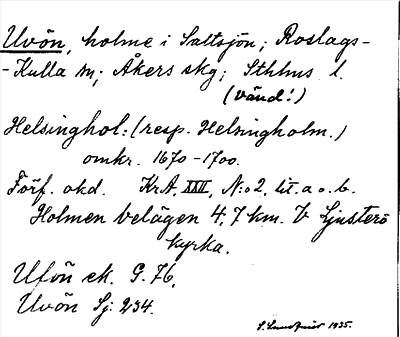 Uvön, holme i Saltsjön; Roslags-
-Kulla sn; Åkers skg; Sthlms l.
(vänd!)
Helsinghol: (resp. Helsingholm.)
omkr. 1670-1700.
Förf. okd. KrA, XXII, N:o 2, lit. a o. b.
Holmen belägen 4,7 km. V Ljusterö
kyrka.
Ufön ek. G. 76,
Uvön Sj: 234.
1935.